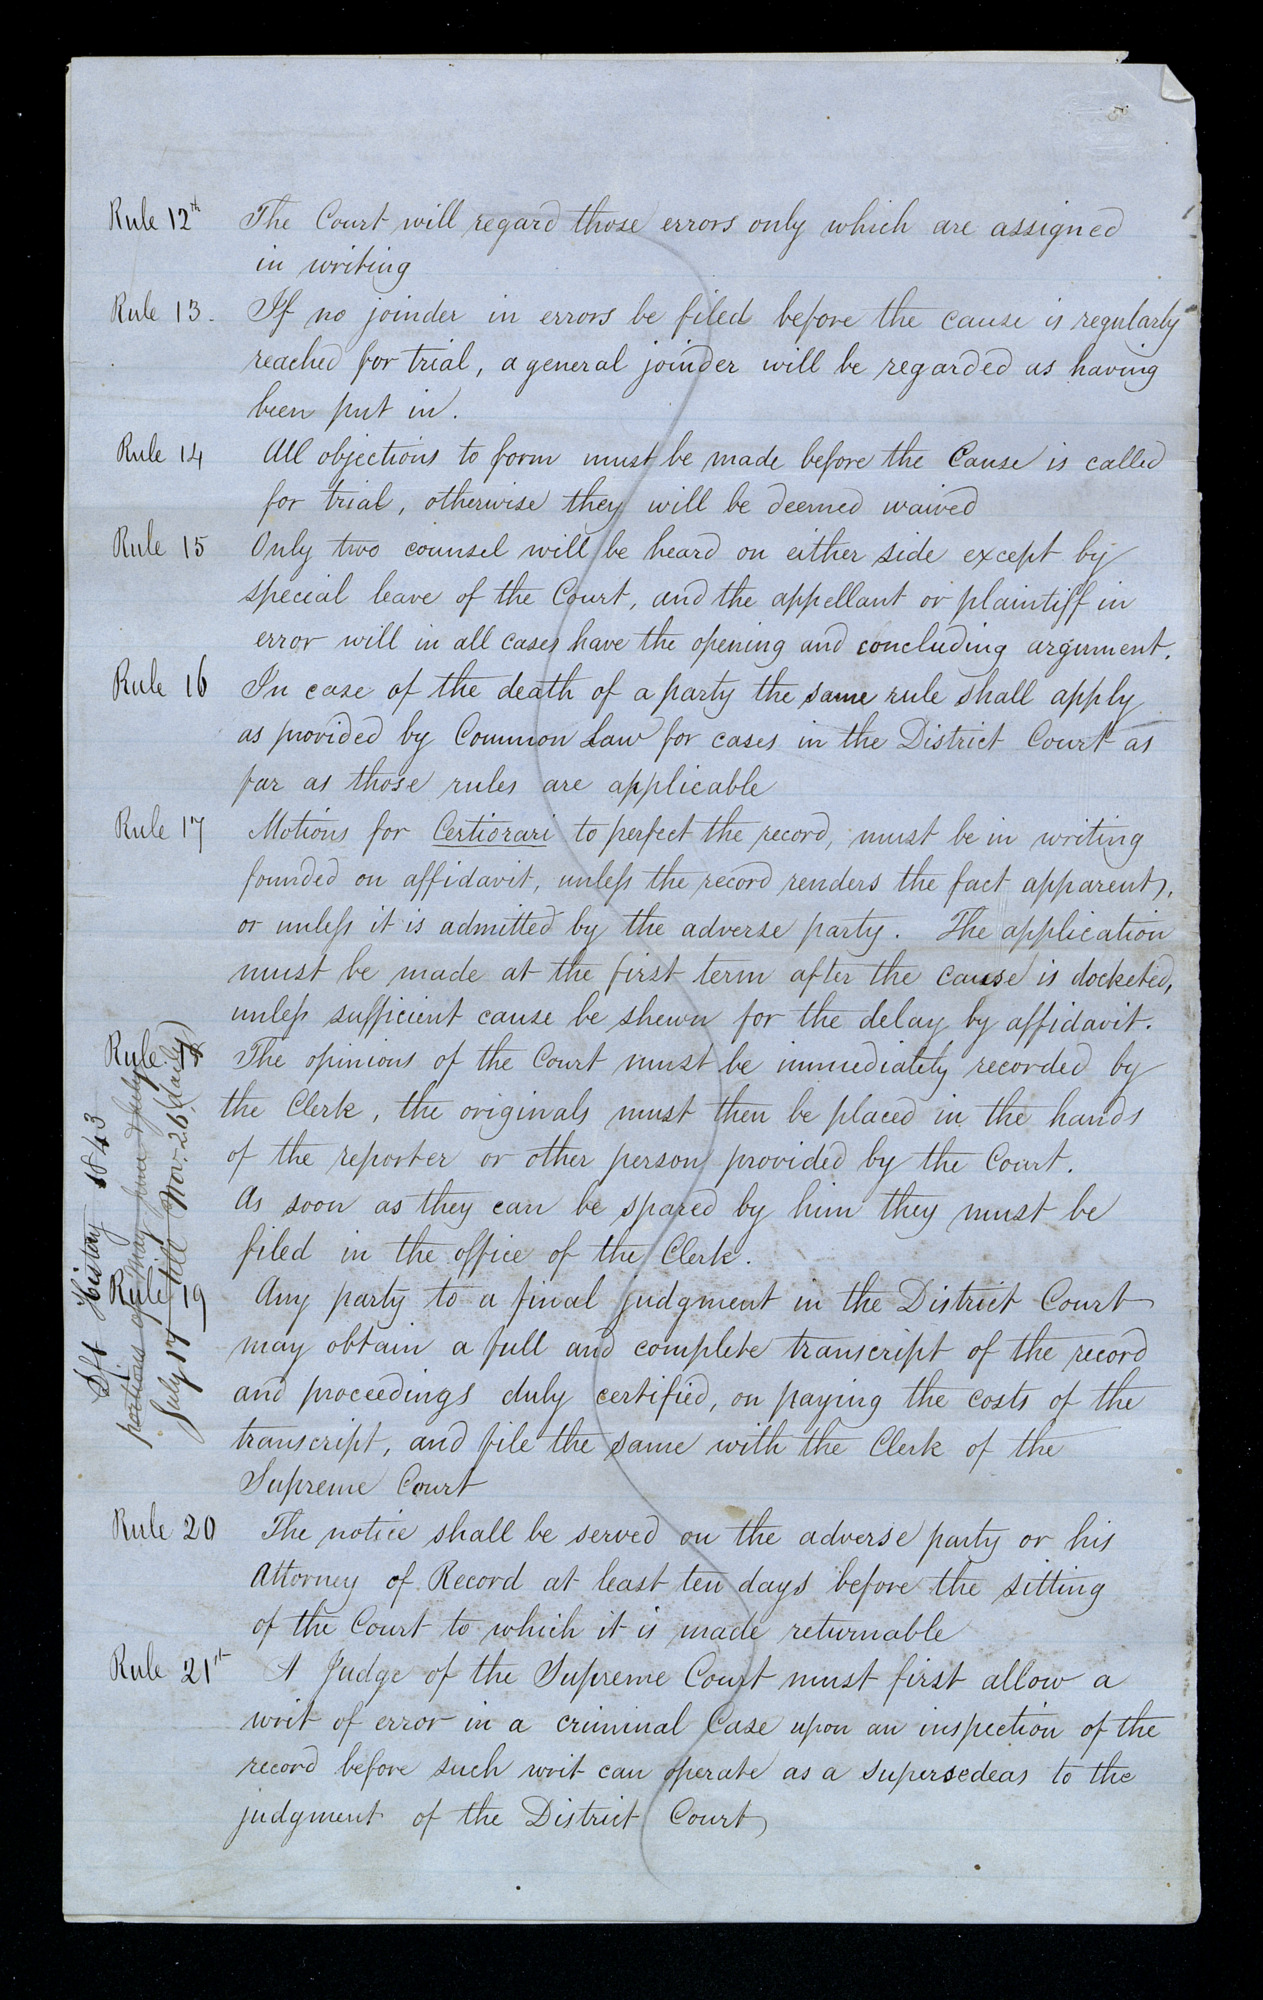 Rule 12th The Court will regard those errors only which are assigned
in writing
Rule 13. If no joinder in errors be filed before the cause is regularly
reached for trial, a general joinder will be regarded as having
been put in.
Rule 14 All objections to form must be made before the Cause is called
for trial, otherwise they will be deemed waived
Rule 15 Only two counsel will be heard on either side except by
special leave of the Court, and the appellant or plaintiff in
error will in all cases have the opening and concluding argument.
Rule 16 In case of the death of a party the same rule shall apply
as provided by Common Law for cases in the District Court as
far as those rules are applicable
Rule 17 Motions for Certiorari to perfect the record, must be in writing
founded on affidavit, unless the record renders the fact apparent,
or unless it is admitted by the adverse party. The application
must be made at the first term after the cause is docketed,
unless sufficient cause be shewn for the delay by affidavit.
Rule The opinions of the Court must be immediately recorded by
the Clerk, the originals must then be placed in the hands
of the reporter or other person provided by the Court.
As soon as they can be spared by him they must be
filed in the office of the Clerk.
Rule 19 Any party to a final judgment in the District Court
may obtain a full and complete transcript of the record
and proceedings duly certified, on paying the costs of the
transcript, and file the same with the Clerk of the
Supreme Court
Rule 20 The notice shall be served on the adverse party or his
Attorney of Record at least ten days before the sitting
of the Court to which it is made returnable
Rule 21st A Judge of the Supreme Court must first allow a
writ of error in a criminal Case upon an inspection of the
record before such writ can operate as a supersedeas to the
judgment of the District Court
History 1843
portions of May June & July
July 17 till Nov. 26 (daily)